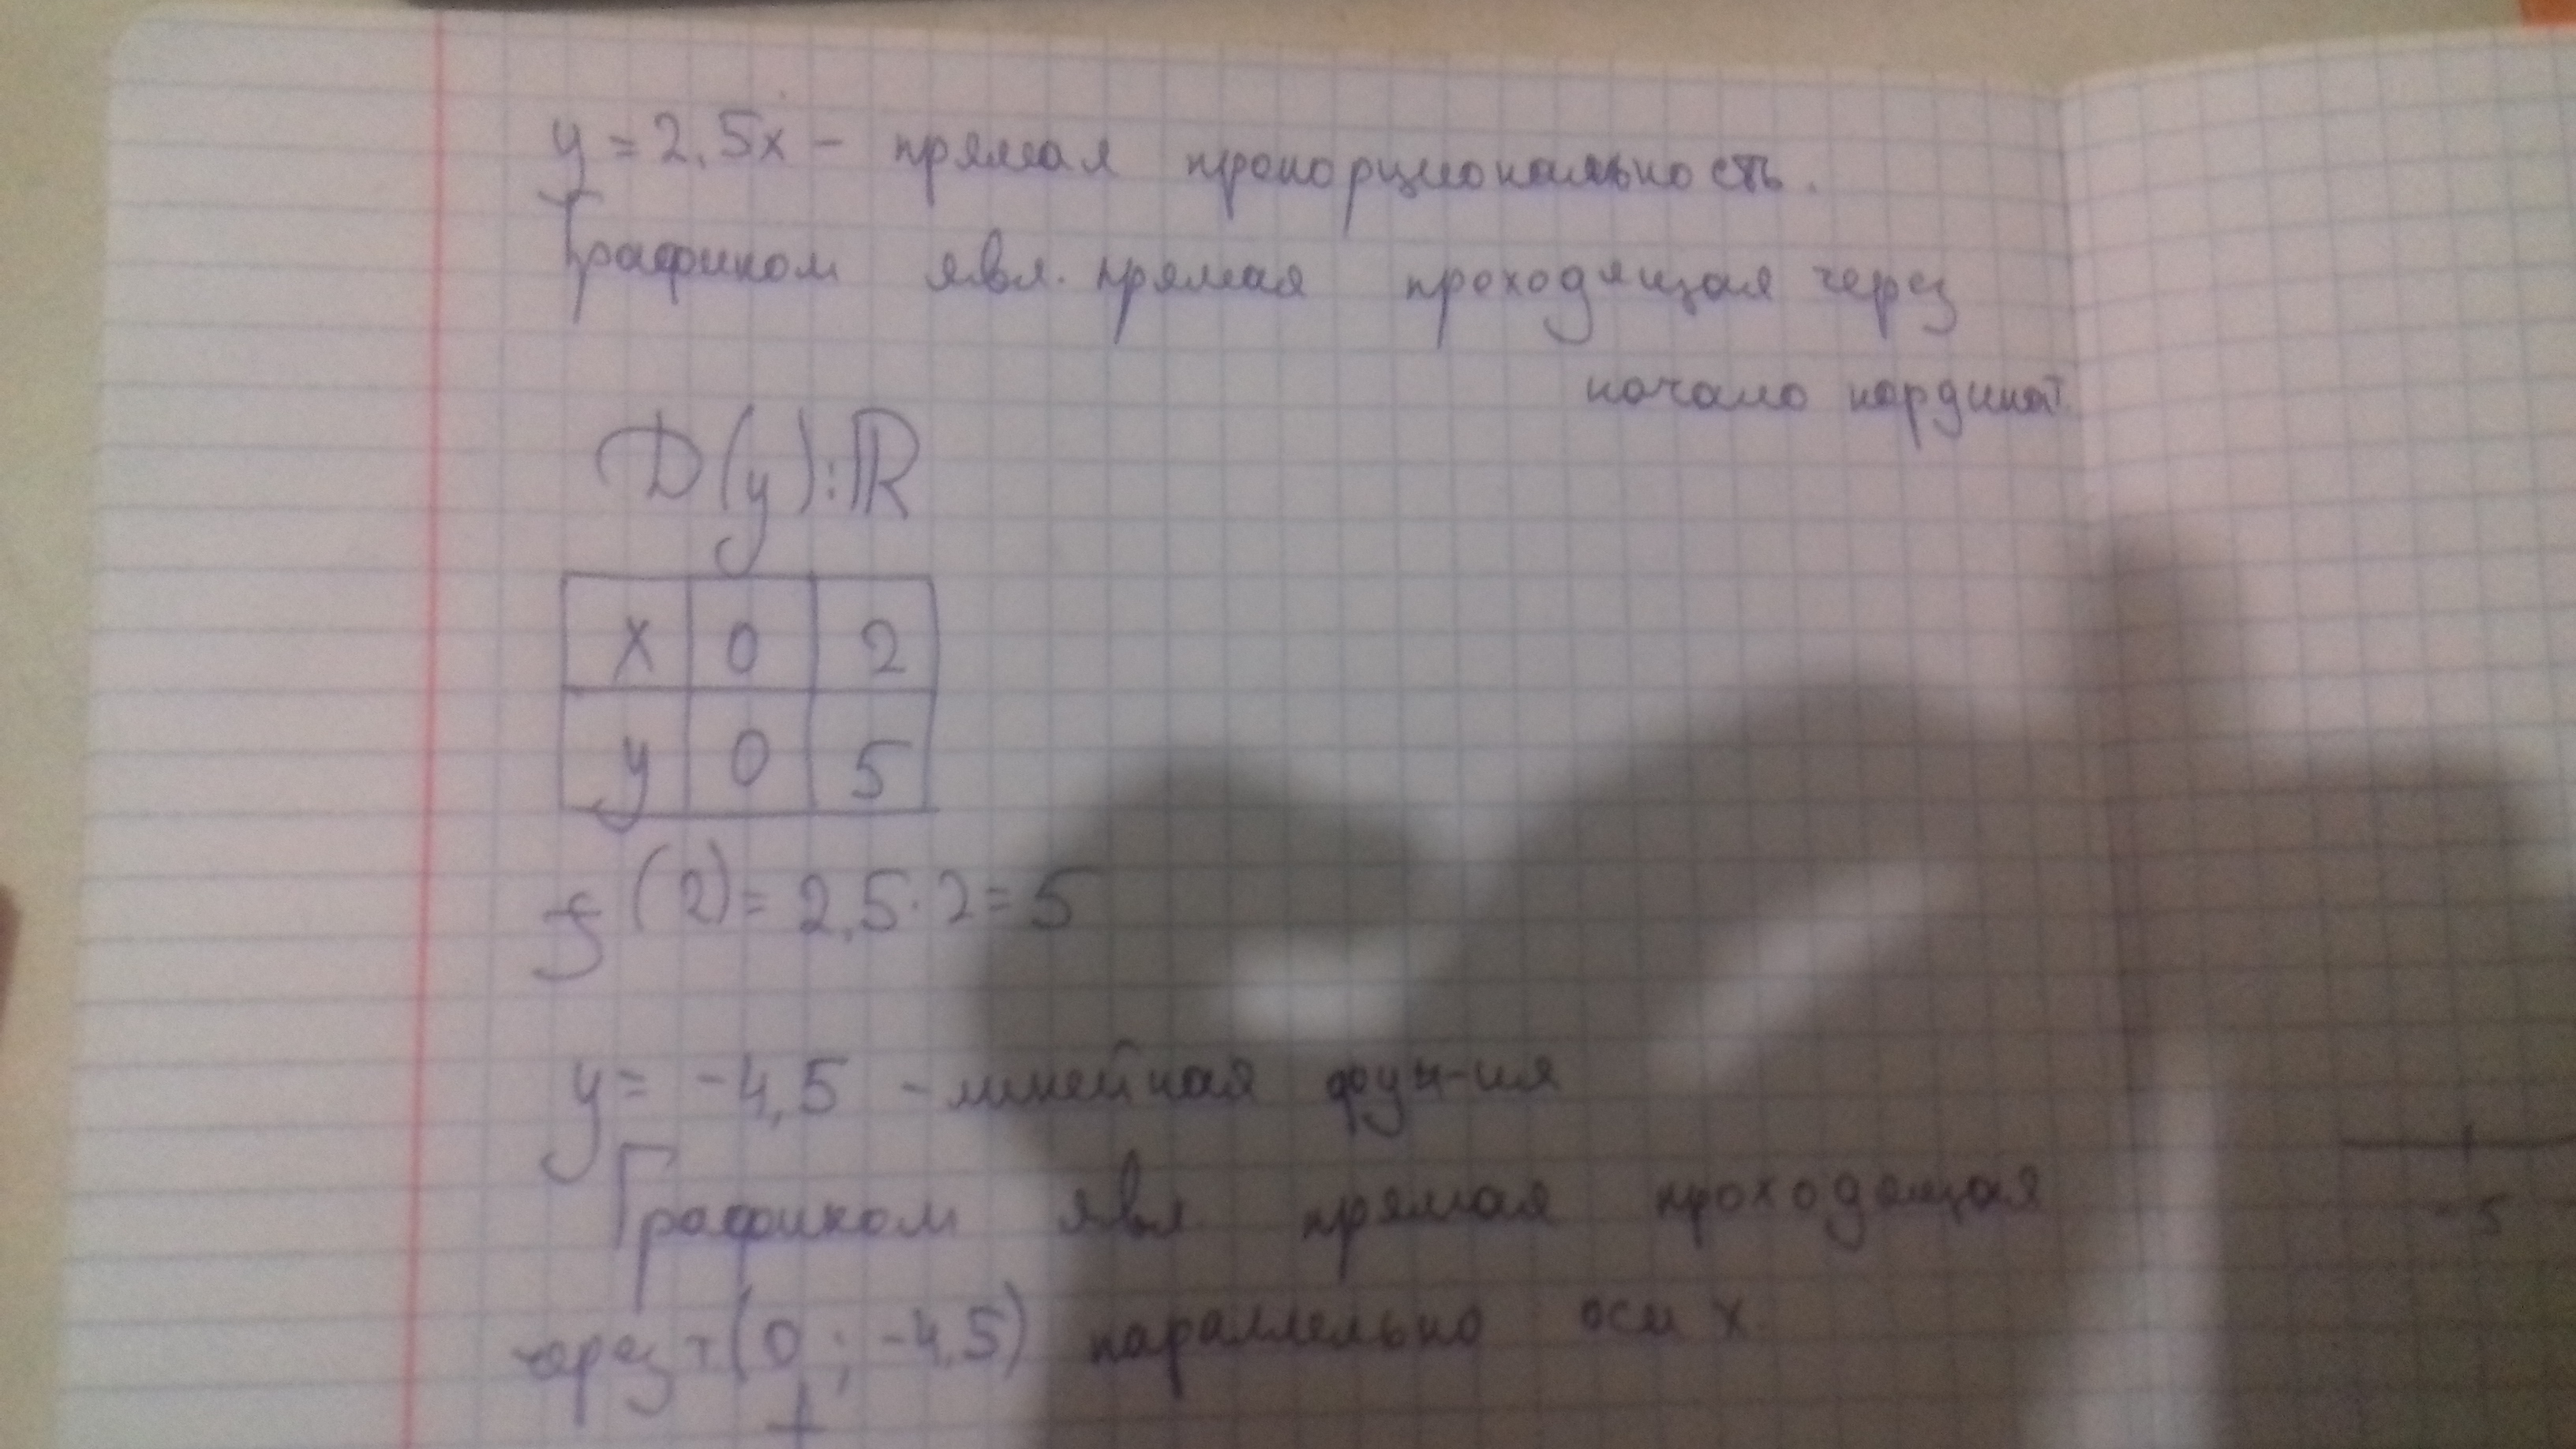 y = 2,5x - прямая пропорциональность.
Графиком явл. прямая проходящая через
начало кординат
D(y):ℝ
x 0 2
y 0 5
f(2)= 2,5·2=5
y= -4,5 - линейная функ-ия
Графиком явл прямая проходящая
через т(0; -4,5) параллельно оси x
-5